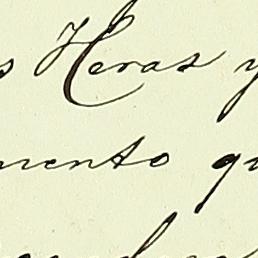 s Heras y
mento qu